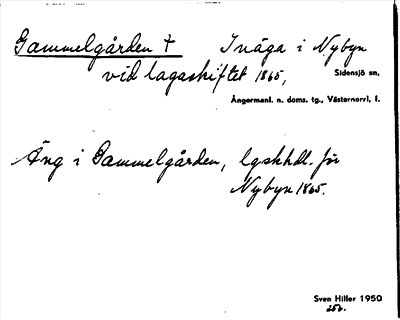 Gammelgården † Inäga i Nybyn
vid lagaskiftet 1865,
Sidensjö sn,
Ångermanl. n. doms. tg., Västernorrl, l.
Äng i Gammelgården, lgskhdl. för
Nybyn 1865.
Sven Hiller 1950